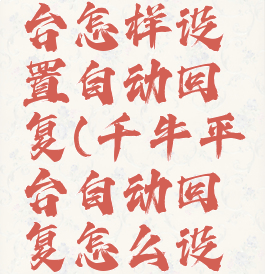 台怎样设
置自动回
复(千牛平
台自动回
复怎么设